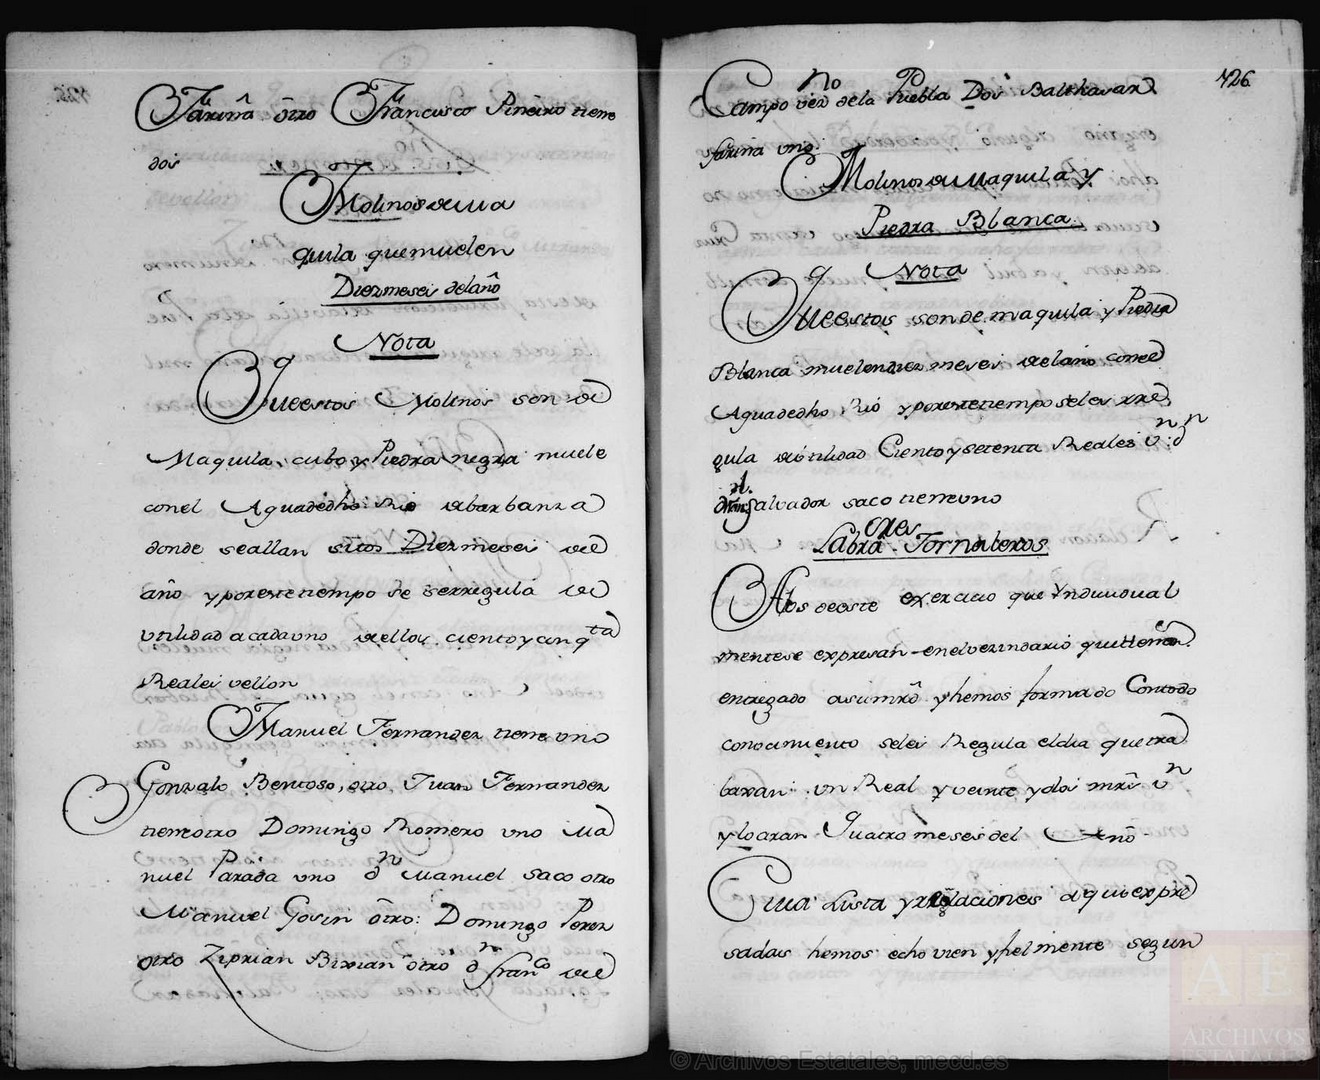 Fariña ôtro Francisco Pineiro tiene
dos
Molinos de Ma
quila que muelen
Diez meses del añô
Nota
Que estos Molinos son de
Maquila, cubo y Piedra negra muele
con el Agua de dho Rio de barbanza
donde se allan sitos Diez meses del
año y por este tiempo se ses regula de
utilidad a cada uno de ellos ciento y cinqta
Reales vellon
Manuel Fernandez tiene uno
Gonzalo Bentoso, otro, Juan Fernandez
tiene otro Domingo Romero uno Ma
nuel Parada uno dn Manuel saco otro
Manuel Gosin ôtro: Domingo Perez
otro Ziprian Birian ôtro dn Franco de
726
Campo vezno de la Puebla Dos Balthasar
fariña uno
Molinos de Maquila y
Piedra Blanca
Nota
Que estos son de maquila y Piedra
Blanca muelen diez meses del año con el
Agua de dho Rio y por este tiempo se les rre
gula de utilidad Ciento y setenta Reales vn: dn
Salvador saco tiene uno
Labraores Jornaleros
A los de este exercicio que Yndividual
mente se expresan en el vezindario que tienen
entregado a su mrd y hemos formado Con todo
conocimiento se les Regula el dia que tra
baxan un Real y veinte y dos mrs vn
y lo aran Quatro meses del Año
Cuia Lista y relaciones a qui expre
sadas hemos echo vien y fielmente segun
© Archivos Estatales, mecd.es
AE
ARCHIVOS
ESTATALES